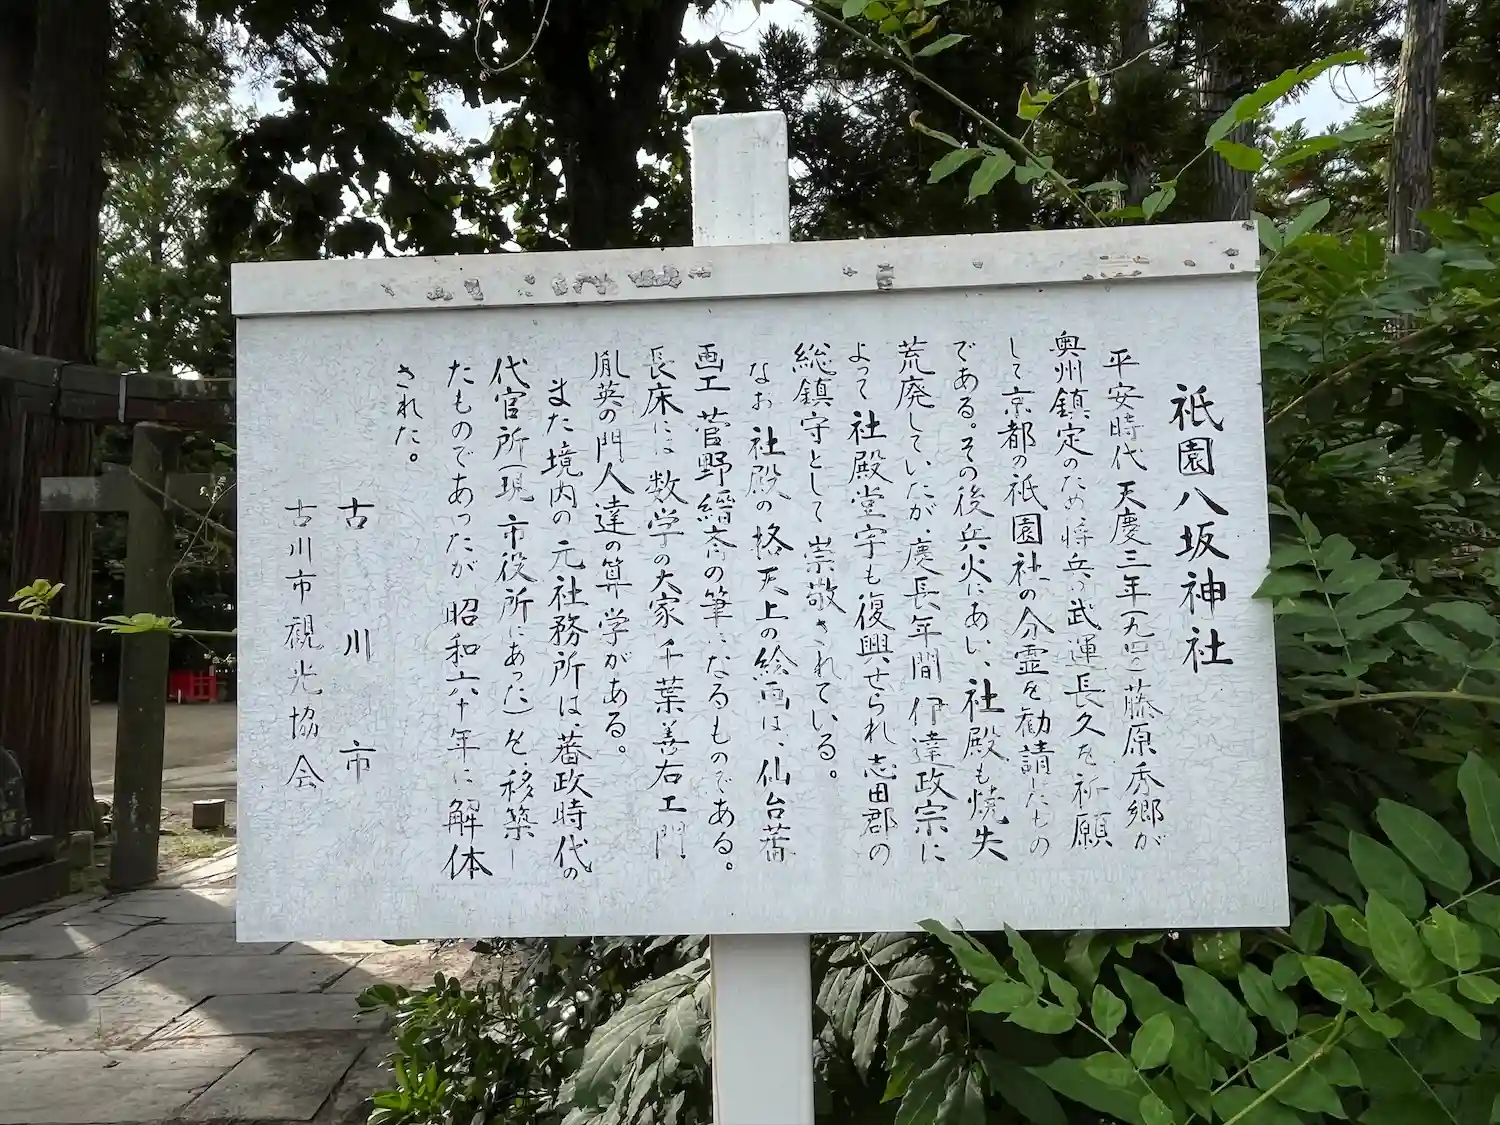 祇園八坂神社
平安時代天慶三年(九四〇)藤原秀郷が
奥州鎮定のため将兵の武運長久を祈願
して京都の祇園社の分霊を勧請したもの
である。その後兵火にあい、社殿も焼失
荒廃していたが、慶長年間伊達政宗に
よって社殿堂宇も復興せられ志田郡の
総鎮守として崇敬されている。
なお社殿の格天上の絵画は、仙台蕃
画工菅野縉斎の筆になるものである。
長床には数学の大家千葉善右エ門
胤英の門人達の算学がある。
また境内の元社務所は、蕃政時代の
代官所(現市役所にあった)を移築し
たものであったが昭和六十年に解体
された。
古川市
古川市観光協会